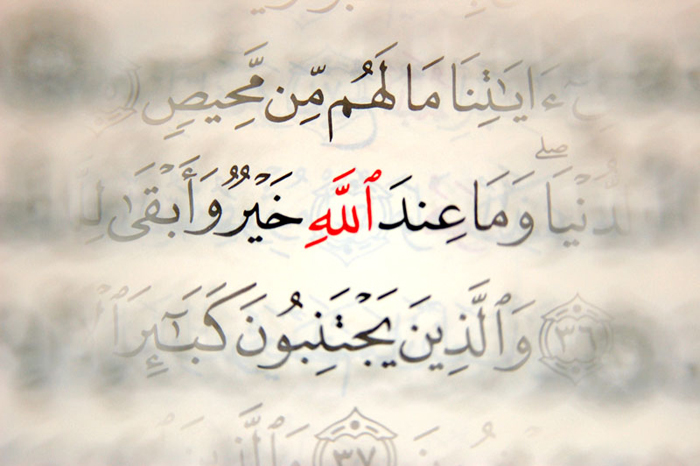 ءَايَٰتِنَا مَا لَهُم مِّن مَّحِيصٍ
ٱلدُّنْيَا ۖ وَمَا عِندَ ٱللَّهِ خَيْرٌ وَأَبْقَىٰ
٣٦ وَٱلَّذِينَ يَجْتَنِبُونَ كَبَٰٓئِرَ
٣٧ وَٱلَّذِينَ